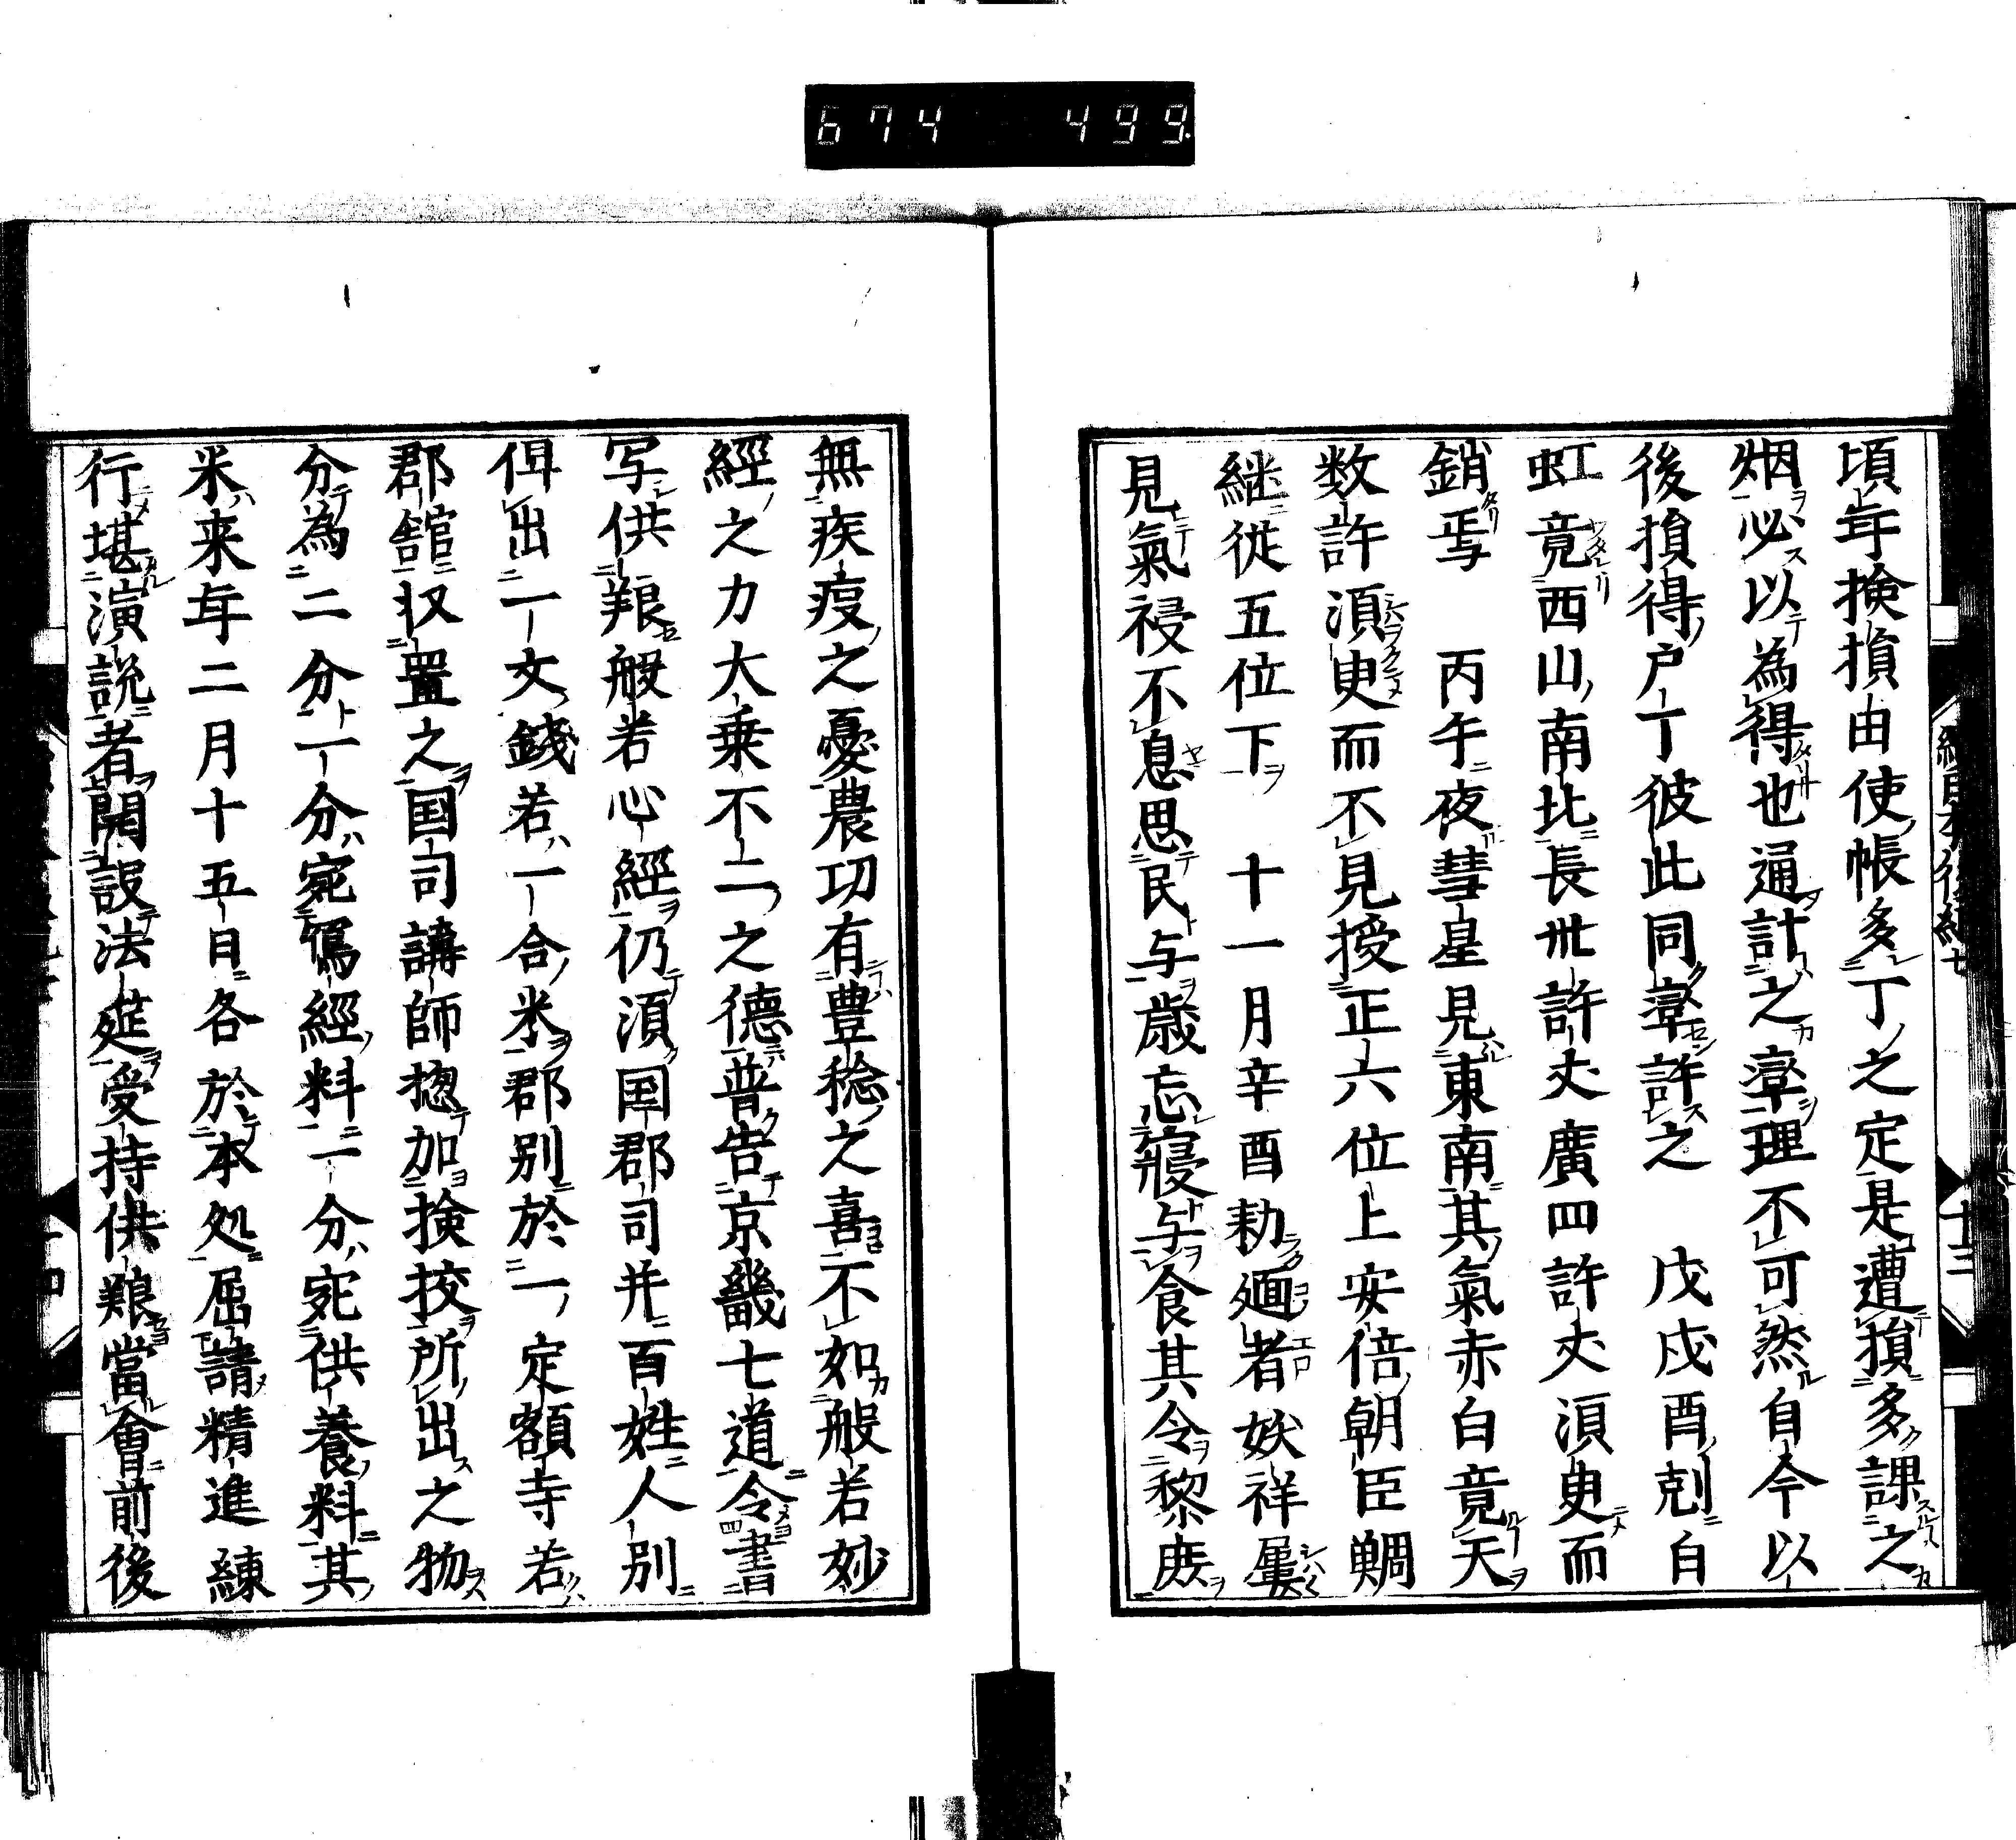 674 499
續日本後紀七
十三
頃年検損由使帳多丁之定是遭損多課之
烟必以為得也通計之率理不可然自今以
後損得戸丁彼此同率許之 戊戌酉剋白
虹竟西山南北長卅許丈廣四許丈湏臾而
銷焉 丙午夜彗星見東南其氣赤白竟天
数許湏臾而不見授正六位上安倍朝臣鯛
継従五位下 十一月辛酉勅廼者妖祥屢
見氣祲不息思民与歳忘寝与食其令黎庶
無疾疫之憂農功有豊稔之喜不如般若妙
經之力大乗不二之德普告京畿七道令書
写供養般若心經仍湏国郡司并百姓人別
俾出一文錢若一合米郡別於一定額寺若
郡舘収置之国司講師惣加検挍所出之物
分為二分一分宛寫經料一分宛供養料其
米来年二月十五日各於本処屈請精進練
行堪演説者開設法筵受持供養當會前後